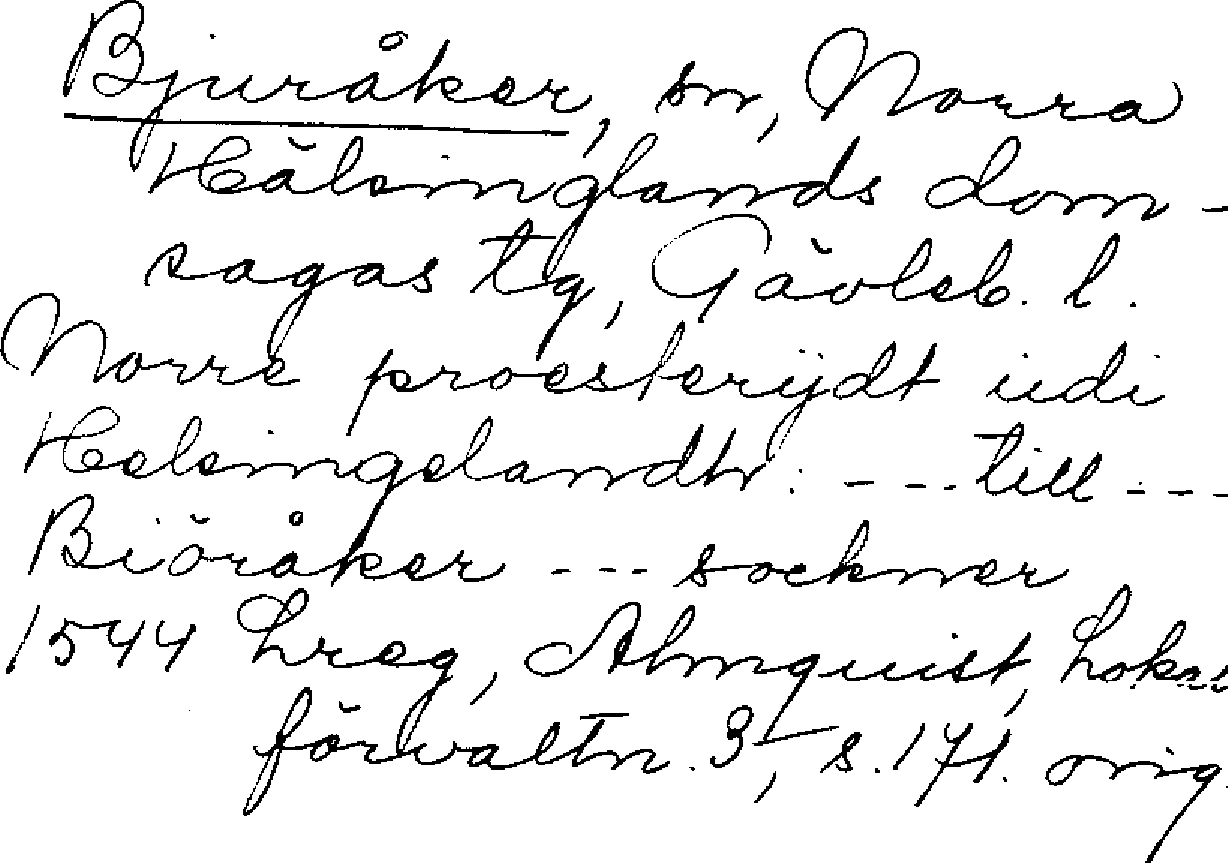 Bjuråker, sn, Norra
Hälsinglands dom-
sagas tg, Gävleb. l.
Norre proesterijdt udi
Helsingelandh: --- till ---
Biöråker --- sockner
1544 Lreg, Almquist, Lok
förvaltn. 3, s. 171. orig.